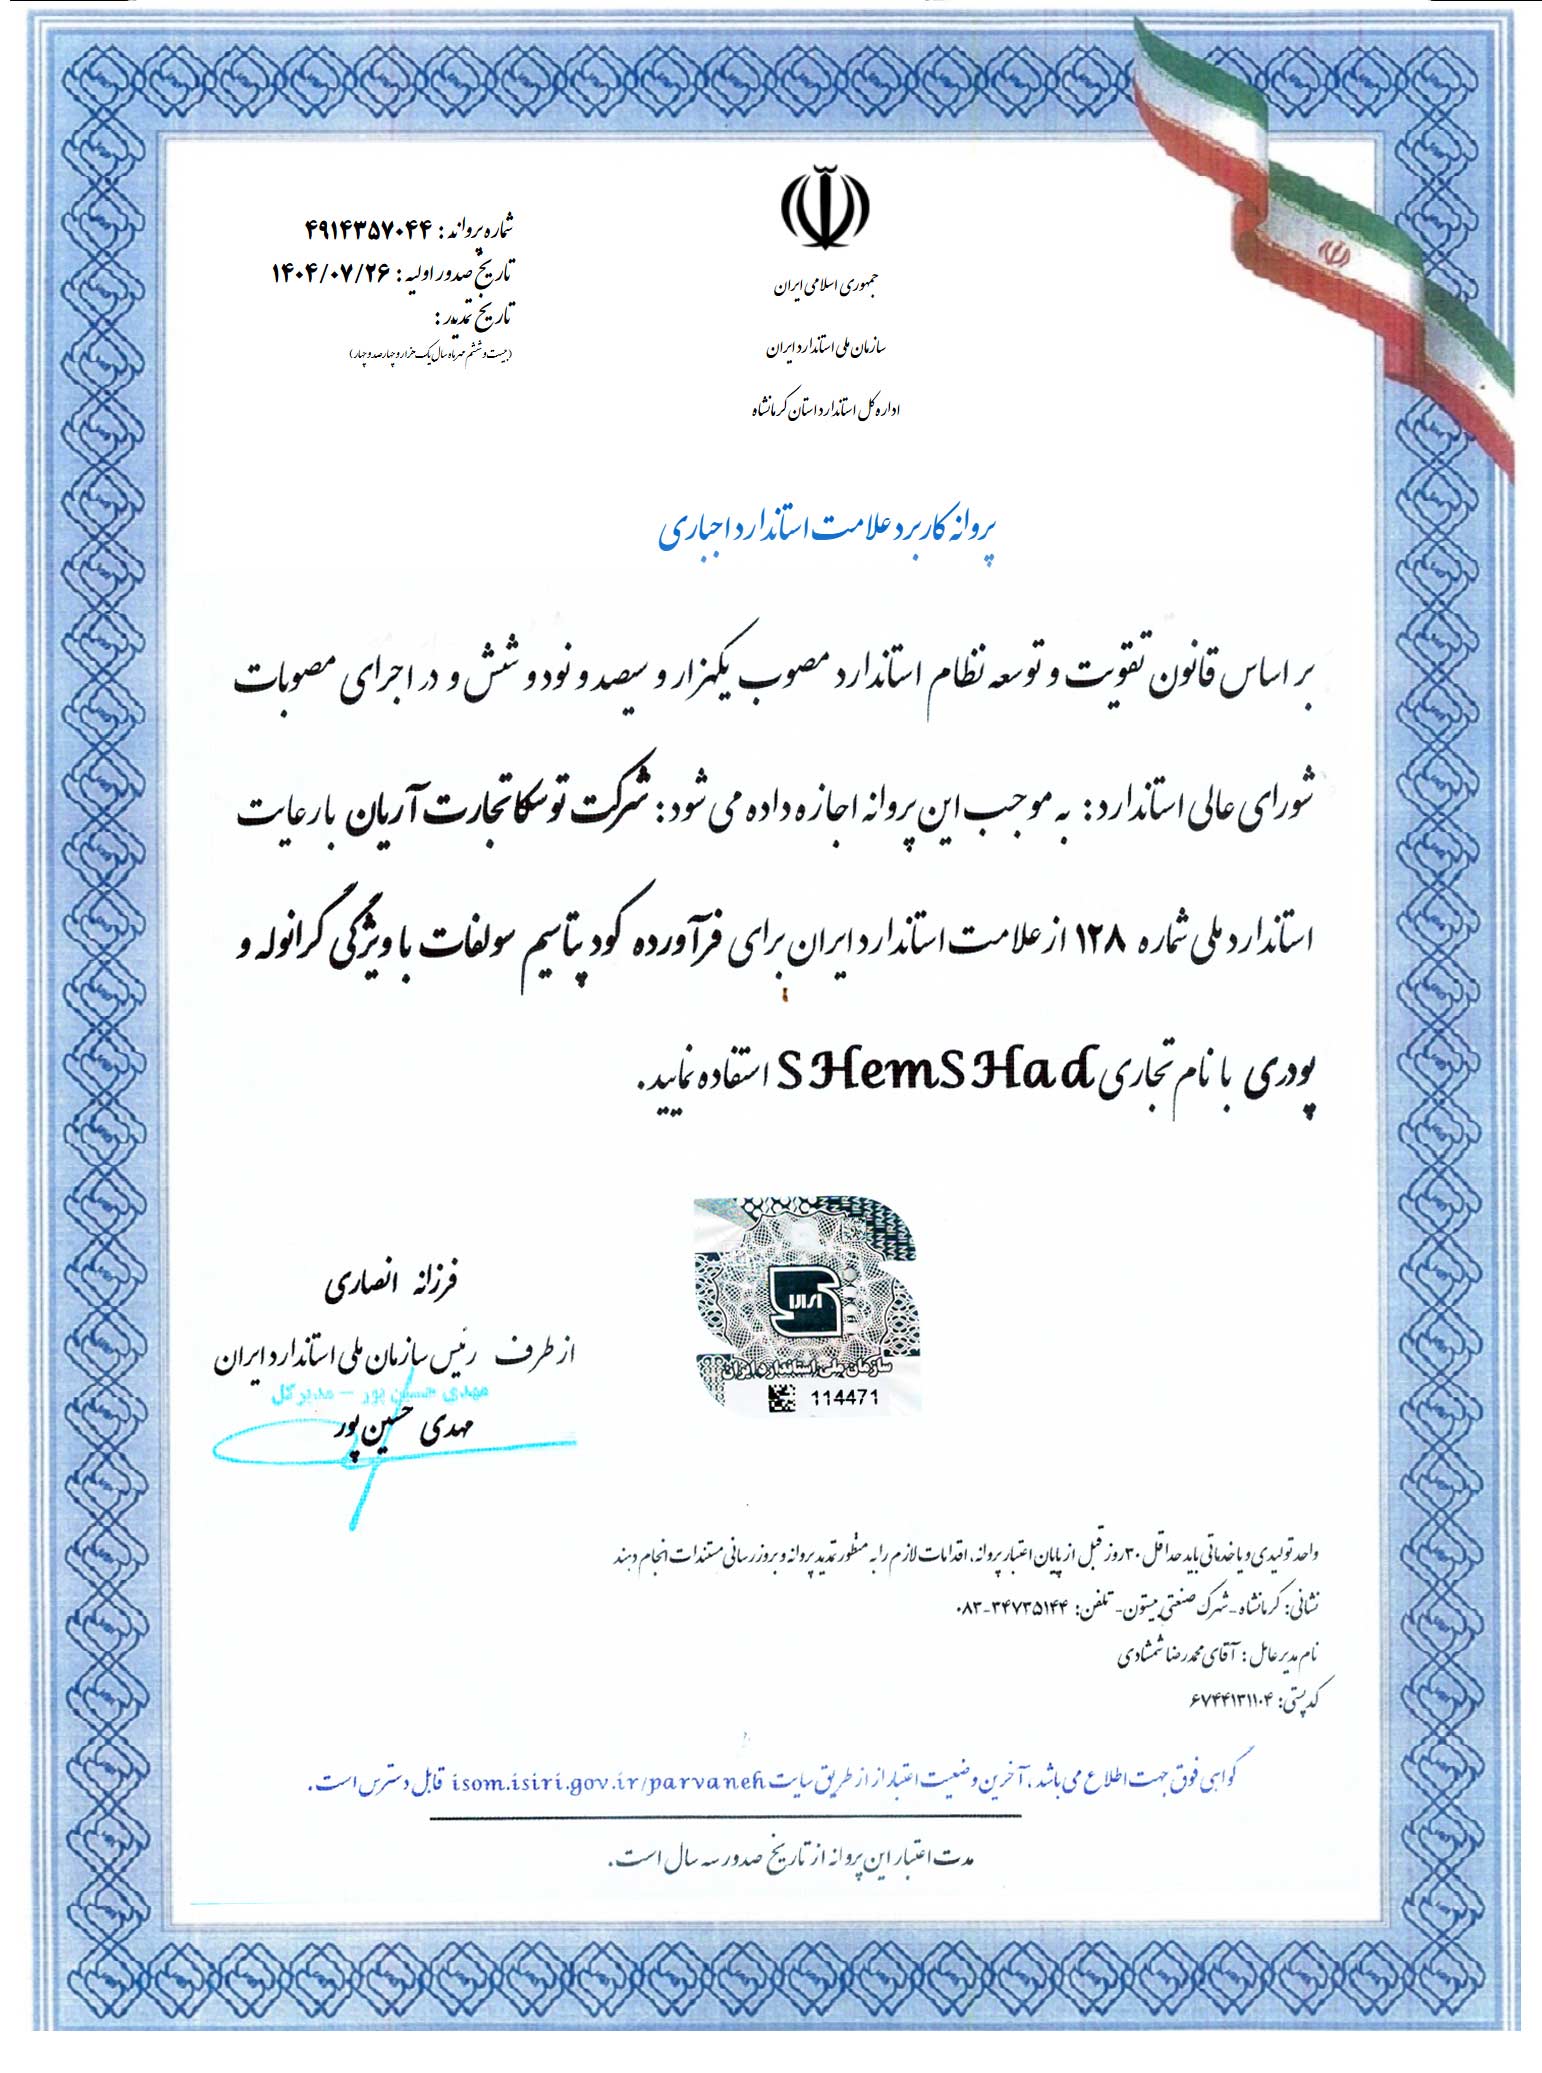 شماره پرواند : ۴۹۱۴۳۵۷۰۴۴
تاریخ صدور اولیه : ۱۴۰۴/۰۷/۲۶
تاریخ تمدید :
(بیست و ششم مهرماه سال یک هزار و چهارصد و چهار)
جمهوری اسلامی ایران
سازمان ملی استاندارد ایران
اداره کل استاندارد استان کرمانشاه
پروانه کاربرد علامت استاندارد اجباری
بر اساس قانون تقویت و توسعه نظام استاندارد مصوب یکهزار و سیصد و نود و شش و در اجرای مصوبات
شورای عالی استاندارد : به موجب این پروانه اجازه داده می شود : شرکت توسکا تجارت آریان با رعایت
استاندارد ملی شماره ۱۲۸ از علامت استاندارد ایران برای فرآورده کود پتاسیم سولفات با ویژگی گرانوله و
پودری با نام تجاری SHemSHad استفاده نمایید.
IRAN IRAN
ایران
سازمان ملی استاندارد ایران
114471
فرزانه انصاری
از طرف رئیس سازمان ملی استاندارد ایران
مهدی حسین پور - مدیر کل
مهدی حسین پور
واحد تولیدی و یا خدماتی باید حداقل ۳۰ روز قبل از پایان اعتبار پروانه، اقدامات لازم را به منظور تمدید پروانه و بروزرسانی مستندات انجام دهند
نشانی: کرمانشاه - شهرک صنعتی بیستون - تلفن: ۰۸۳-۳۴۷۳۵۱۴۴
نام مدیر عامل : آقای محمدرضا شمشادی
کد پستی: ۶۷۴۴۱۳۱۱۰۴
گواهی فوق جهت اطلاع می باشد ، آخرین وضعیت اعتبار از از طریق سایت isom.isiri.gov.ir/parvaneh قابل دسترس است .
مدت اعتبار این پروانه از تاریخ صدور سه سال است .